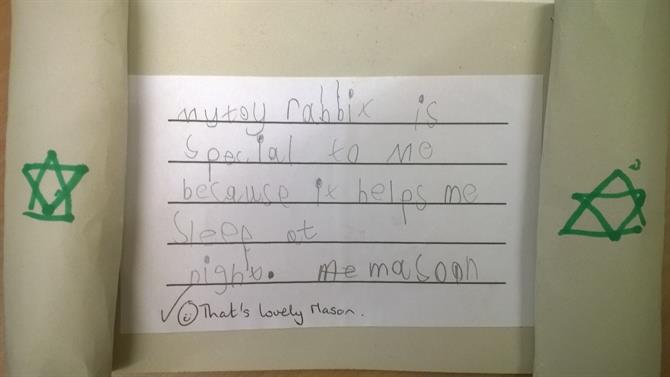 my toy rabbit is
special to me
because it helps me
sleep at
night. me masoon
That's lovely Mason.